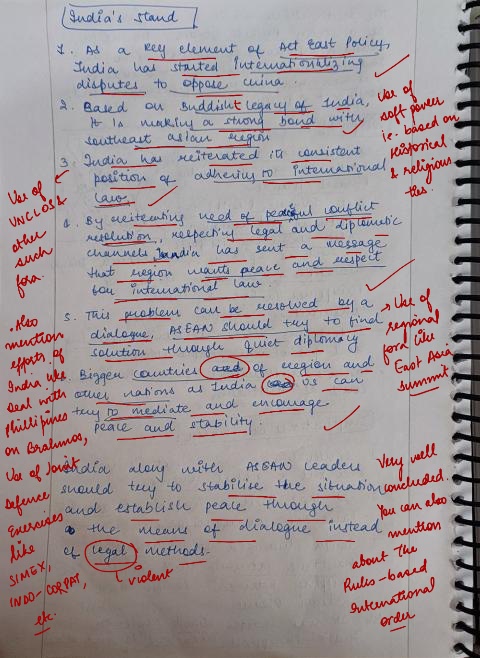 India's Stand
1. As a key element of Act East Policy,
India has started Internationalizing
disputes to oppose China.
2. Based on Buddhist legacy of India,
It is making a strong bond with
southeast asian region
3. India has reiterated its consistent
position of adhering to international
law.
4. By reiterating need of peaceful conflict
resolution, respecting legal and diplomatic
channels India has sent a message
that region wants peace and respect
for international law.
5. This problem can be resolved by a
dialogue, ASEAN should try to find
solution through quiet diplomacy
6. Bigger countries and of region and
other nations as India and US can
try to mediate and encourage
peace and stability.
India along with ASEAN leaders
should try to stabilise the situation
and establish peace through
the means of dialogue instead
of legal methods.
violent
Use of
soft power
i.e. based on
Historical
& religious
ties.
Use of
UNCLOS &
other
such
fora.
→ Use of
regional
fora like
East Asia
Summit
• Also
mention
efforts of
India like
Deal with
Phillipines
on Brahmos,
Use of Joint
Defence
Exercises
like
SIMEX,
INDO-CORPAT,
etc.
Very well
concluded.
You can also
mention
about the
Rules-based
International
order